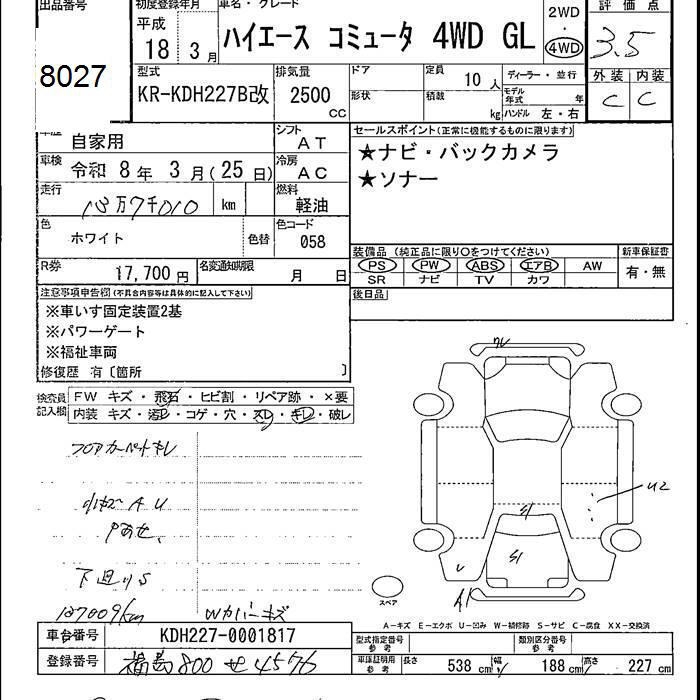 出品番号
8027
初度登録年月
平成
18 3 月
車名・グレード
ハイエース コミュータ 4WD GL
2WD
・
4WD
評価点
3.5
外装 内装
C C
型式
KR-KDH227B改
排気量
2500 CC
ドア
形状
定員 10 人
積載 kg
ディーラー・並行
モデル年式 年
ハンドル 左・右
自家用
シフト
AT
車検
令和 8 年 3 月 ( 25 日)
冷房
AC
走行
13万7千010 km
燃料
軽油
色
ホワイト
色替
色コード
058
R券
17,700 円
名変通知期限 月 日
セールスポイント(正常に機能するものに限ります)
★ナビ・バックカメラ
★ソナー
装備品 (純正品に限り○をつけてください)
PS PW ABS エアB AW
SR ナビ TV カワ
新車保証書
有・無
後日品
注意事項申告欄(不具合内容等は具体的に記入して下さい)
※車いす固定装置2基
※パワーゲート
※福祉車両
修復歴 有〔箇所 〕
検査員記入欄
FW キズ・飛石・ヒビ割・リペア跡・×要
内装 キズ・汚レ・コゲ・穴・スレ・キレ・破レ
フロアカーペットキレ
A U
下廻りS
137009km
Wカバーキズ
U2
A1
S1
S1
U
スペア
A-キズ E-エクボ U-凹み W-補修跡 S-サビ C-腐食 XX-交換済
車台番号 KDH227-0001817
登録番号 福島 800 せ 4576
型式指定番号 参考
類別区分番号 参考
車庫証明用 参考 長さ 538 cm 幅 188 cm 高さ 227 cm